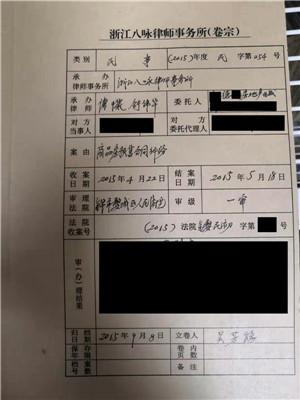 浙江八咏律师事务所(卷宗)
类别 民事 (2015)年度 民 字第054号
承办律师事务所 浙江八咏律师事务所
承办律师 委托人
对方当事人 对方委托代理人
案由 商品房预售合同纠纷
收案日期 2015年4月22日 结案日期 2015年5月18日
审理法院 金华市婺城区人民法院 审级 一审
法院收案号 (2015)法院 金婺民初 字第 号
审(办)理结果
归档日期 2015年9月8日 立卷人
保存年限 卷内页数
档案号 备注